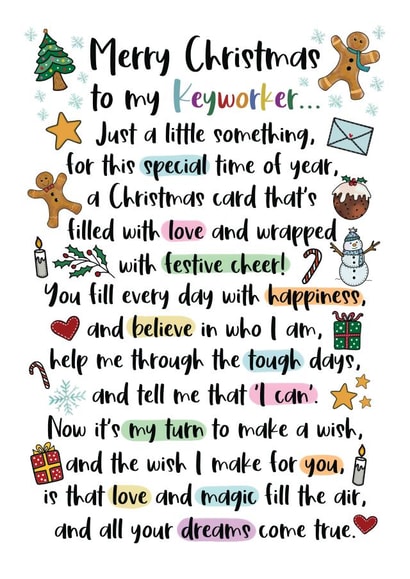 Merry Christmas
to my Keyworker...
Just a little something,
for this special time of year,
a Christmas card that's
filled with love and wrapped
with festive cheer!
You fill every day with happiness,
and believe in who I am,
help me through the tough days,
and tell me that 'I can'.
Now it's my turn to make a wish,
and the wish I make for you,
is that love and magic fill the air,
and all your dreams come true.